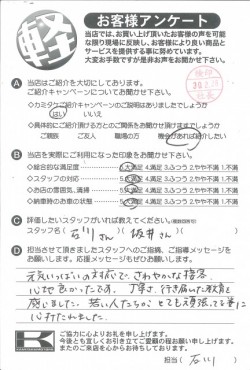 軽
お客様アンケート
当店では、お買い上げ頂いたお客様の声を可能
な限り現場に反映し、お客様により良い商品と
サービスを提供する事に努めています。
大変お手数ですが是非お声をお聞かせ下さい。
A 当店はご紹介を大切にしております。
ご紹介キャンペーンについてお聞かせ下さい。
◇カミタケご紹介キャンペーンのご説明はありましたでしょうか
はい いいえ
◇具体的にご紹介頂ける方とのご関係をお聞かせ頂けますでしょうか
ご親族 ご友人 職場の方 機会があれば紹介したい
B 当店を実際にご利用になった印象をお聞かせ下さい。
◇総合的な満足度 5.大満足 4.満足 3.ふつう 2.やや不満 1.不満
◇スタッフの対応 5.大満足 4.満足 3.ふつう 2.やや不満 1.不満
◇お店の雰囲気、清掃 5.大満足 4.満足 3.ふつう 2.やや不満 1.不満
◇納車時のお車の状態 5.大満足 4.満足 3.ふつう 2.やや不満 1.不満
C 評価したいスタッフがいれば教えてください。
スタッフ名( 石川さん )( 坂井さん )
D 担当させて頂きましたスタッフへのご指摘、ご指導メッセージを
お願いします。応援メッセージもぜひお願いします。
元気いっぱいの対応で、さわやかな接客
心地良かったです。丁寧で、行き届いた教育を
感じました。若い人たちがとても頑張ってる事に
心打たれました。
ご協力に心よりお礼を申し上げます。
今後とも宜しくお引き立てご愛顧の程お願い申し上げます。
またのご来店を心からお待ちしております。
担当( 石川 )